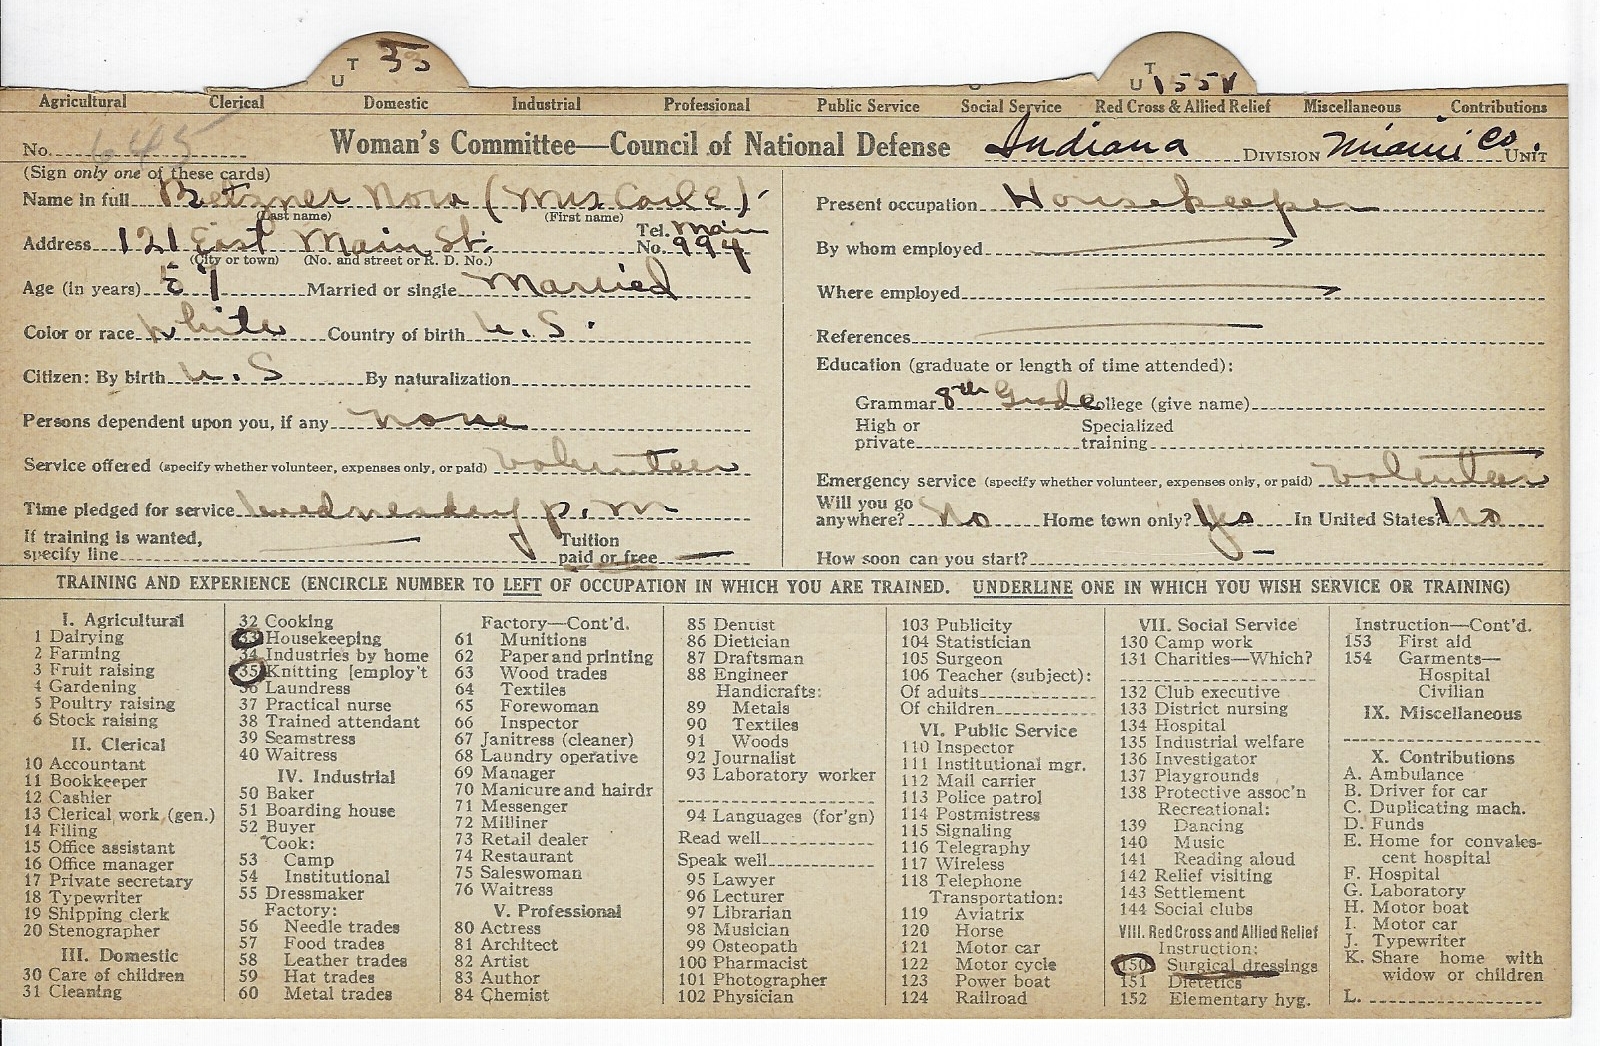 U T 35
U T 155
Agricultural Clerical Domestic Industrial Professional Public Service Social Service Red Cross & Allied Relief Miscellaneous Contributions
No. 645 Woman's Committee—Council of National Defense Indiana DIVISION Miami Co. UNIT
(Sign only one of these cards)
Name in full Betzner Nora (Mrs Carl E)
(Last name) (First name)
Address 121 East Main St. Tel. No. Main 994
(City or town) (No. and street or R. D. No.)
Age (in years) Married or single Married
Color or race White Country of birth U.S.
Citizen: By birth U.S By naturalization
Persons dependent upon you, if any none
Service offered (specify whether volunteer, expenses only, or paid) volunteer
Time pledged for service Wednesday p.m
If training is wanted,
specify line
Tuition
paid or free —
Present occupation Housekeeper
By whom employed
Where employed
References
Education (graduate or length of time attended):
Grammar 8th Grade College (give name)
High or
private
Specialized
training
Emergency service (specify whether volunteer, expenses only, or paid) volunteer
Will you go
anywhere? No Home town only? Yes In United States? No
How soon can you start? —
TRAINING AND EXPERIENCE (ENCIRCLE NUMBER TO LEFT OF OCCUPATION IN WHICH YOU ARE TRAINED. UNDERLINE ONE IN WHICH YOU WISH SERVICE OR TRAINING)
I. Agricultural
1 Dairying
2 Farming
3 Fruit raising
4 Gardening
5 Poultry raising
6 Stock raising
II. Clerical
10 Accountant
11 Bookkeeper
12 Cashier
13 Clerical work (gen.)
14 Filing
15 Office assistant
16 Office manager
17 Private secretary
18 Typewriter
19 Shipping clerk
20 Stenographer
III. Domestic
30 Care of children
31 Cleaning
32 Cooking
33 Housekeeping
34 Industries by home
35 Knitting [employ't
36 Laundress
37 Practical nurse
38 Trained attendant
39 Seamstress
40 Waitress
IV. Industrial
50 Baker
51 Boarding house
52 Buyer
Cook:
53 Camp
54 Institutional
55 Dressmaker
Factory:
56 Needle trades
57 Food trades
58 Leather trades
59 Hat trades
60 Metal trades
Factory—Cont'd.
61 Munitions
62 Paper and printing
63 Wood trades
64 Textiles
65 Forewoman
66 Inspector
67 Janitress (cleaner)
68 Laundry operative
69 Manager
70 Manicure and hairdr
71 Messenger
72 Milliner
73 Retail dealer
74 Restaurant
75 Saleswoman
76 Waitress
V. Professional
80 Actress
81 Architect
82 Artist
83 Author
84 Chemist
85 Dentist
86 Dietician
87 Draftsman
88 Engineer
Handicrafts:
89 Metals
90 Textiles
91 Woods
92 Journalist
93 Laboratory worker
94 Languages (for'gn)
Read well
Speak well
95 Lawyer
96 Lecturer
97 Librarian
98 Musician
99 Osteopath
100 Pharmacist
101 Photographer
102 Physician
103 Publicity
104 Statistician
105 Surgeon
106 Teacher (subject):
Of adults
Of children
VI. Public Service
110 Inspector
111 Institutional mgr.
112 Mail carrier
113 Police patrol
114 Postmistress
115 Signaling
116 Telegraphy
117 Wireless
118 Telephone
Transportation:
119 Aviatrix
120 Horse
121 Motor car
122 Motor cycle
123 Power boat
124 Railroad
VII. Social Service
130 Camp work
131 Charities—Which?
132 Club executive
133 District nursing
134 Hospital
135 Industrial welfare
136 Investigator
137 Playgrounds
138 Protective assoc'n
Recreational:
139 Dancing
140 Music
141 Reading aloud
142 Relief visiting
143 Settlement
144 Social clubs
VIII. Red Cross and Allied Relief
Instruction:
150 Surgical dressings
151 Dietetics
152 Elementary hyg.
Instruction—Cont'd.
153 First aid
154 Garments—
Hospital
Civilian
IX. Miscellaneous
X. Contributions
A. Ambulance
B. Driver for car
C. Duplicating mach.
D. Funds
E. Home for convales-
cent hospital
F. Hospital
G. Laboratory
H. Motor boat
I. Motor car
J. Typewriter
K. Share home with
widow or children
L.